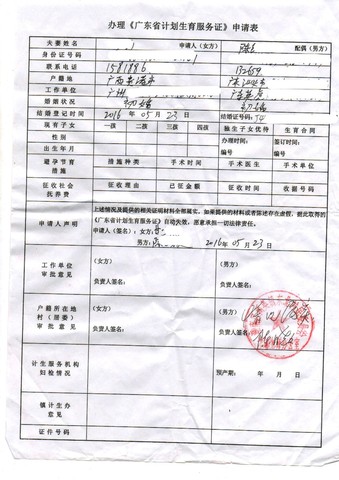 办理《广东省计划生育服务证》申请表
夫妻姓名 申请人（女方） 配偶（男方）
身份证号码
联系电话 1581886 132659
户籍地
工作单位 广州
婚姻状况 初婚 初婚
结婚登记时间 2016年05月23日 结婚证号码: J4
现有子女 一孩 二孩 三孩 四孩 独生子女优待 生育合同
性别 办理时间: 签订时间:
出生年月 编号 编号
避孕节育措施 措施种类 手术时间 手术医生 手术单位
征收社会抚养费 征收理由 已征金额 征收时间 收据号码
申请人声明
上述情况及提供的相关证明材料全部属实，如果提供的材料或者陈述存在虚假，据此取得的
《广东省计划生育服务证》自动失效，愿意承担一切法律责任。
申请人（签名）: 女方:
男方: 2016年05月23日
工作单位审批意见 （女方） （男方）
负责人签名: 负责人签名:
户籍所在地村（居委）审批意见 （女方） （男方）
负责人签名: 负责人签名:
计生服务机构妇检情况 预产期: 年 月 日
镇计生办意见
证件号码